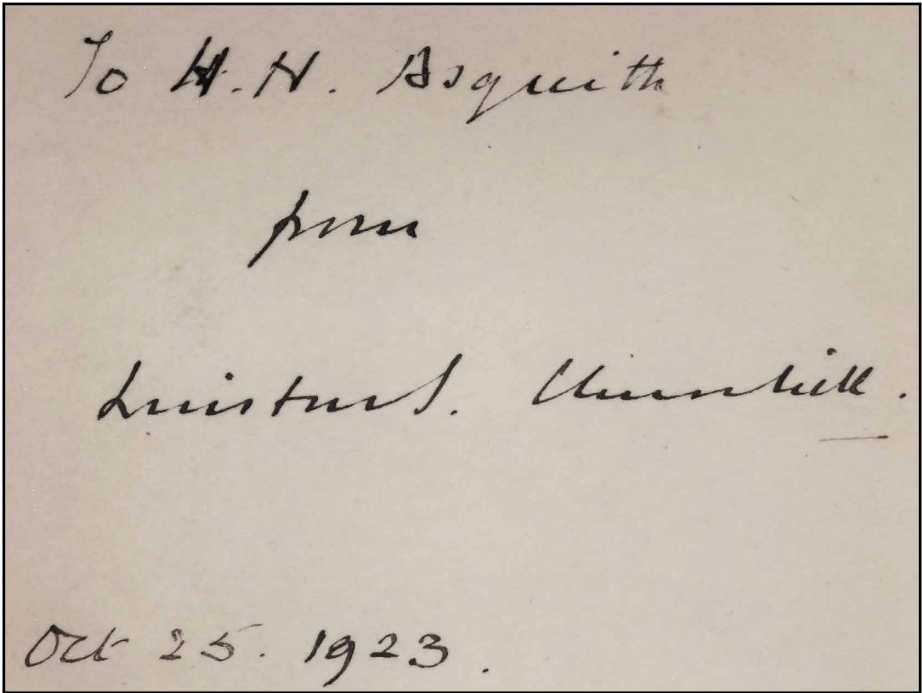 To H. H. Asquith
from
Winston S. Churchill.
Oct 25. 1923.